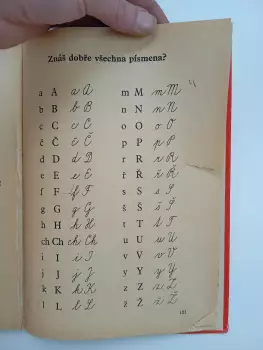 Znáš dobře všechna písmena?
a A a A m M m M
b B b B n N n N
c C c C o O o O
č Č č Č p P p P
d D d D r R r R
e E e E ř Ř ř Ř
f F f F s S s S
g G g G š Š š Š
h H h H t T t T
ch Ch ch Ch u U u U
i I i I v V v V
j J j J y Y y Y
k K k K z Z z Z
l L l L ž Ž ž Ž